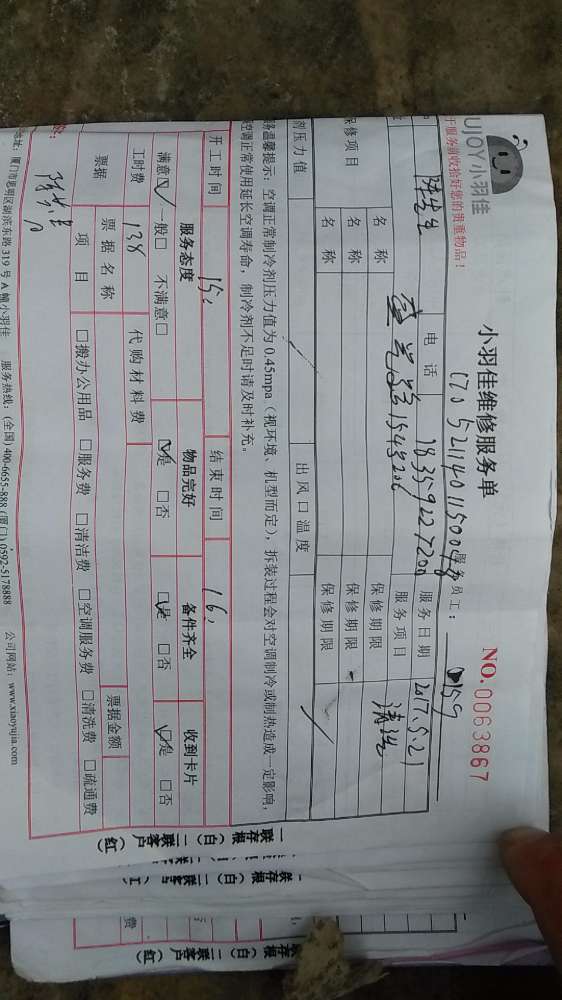 UJOY小羽佳
小羽佳维修服务单
NO.0063867
于服务前收拾好您的贵重物品！
服务员工：
0159
陈先生
电话
18359227200
服务日期
2017.5.21
服务项目
清洗
保修项目
名称
保修期限
名称
保修期限
名称
保修期限
剂压力值
出风口温度
务温馨提示：空调正常制冷剂压力值为0.45mpa（视环境、机型而定），拆装过程会对空调制冷或制热造成一定影响，
空调正常使用延长空调寿命，制冷剂不足时请及时补充。
开工时间
15:
结束时间
16:
服务态度
物品完好
备件齐全
收到卡片
满意☑ 一般□ 不满意□
☑是 □否
☑是 □否
☑是 □否
工时费
138
代购材料费
票据
票据名称
票据金额
项目
□搬办公用品 □服务费 □清洁费 □空调服务费 □清洗费 □疏通费
地址：厦门市思明区湖滨东路319号A幢小羽佳 服务热线：(全国) 400-6655-888 (厦门) 0592-5178888 公司网站：www.xiaoyujia.com
一联存根（白）二联客户（红）
一联存根（白）二联客户
联存根（白）二联客户（红）
费